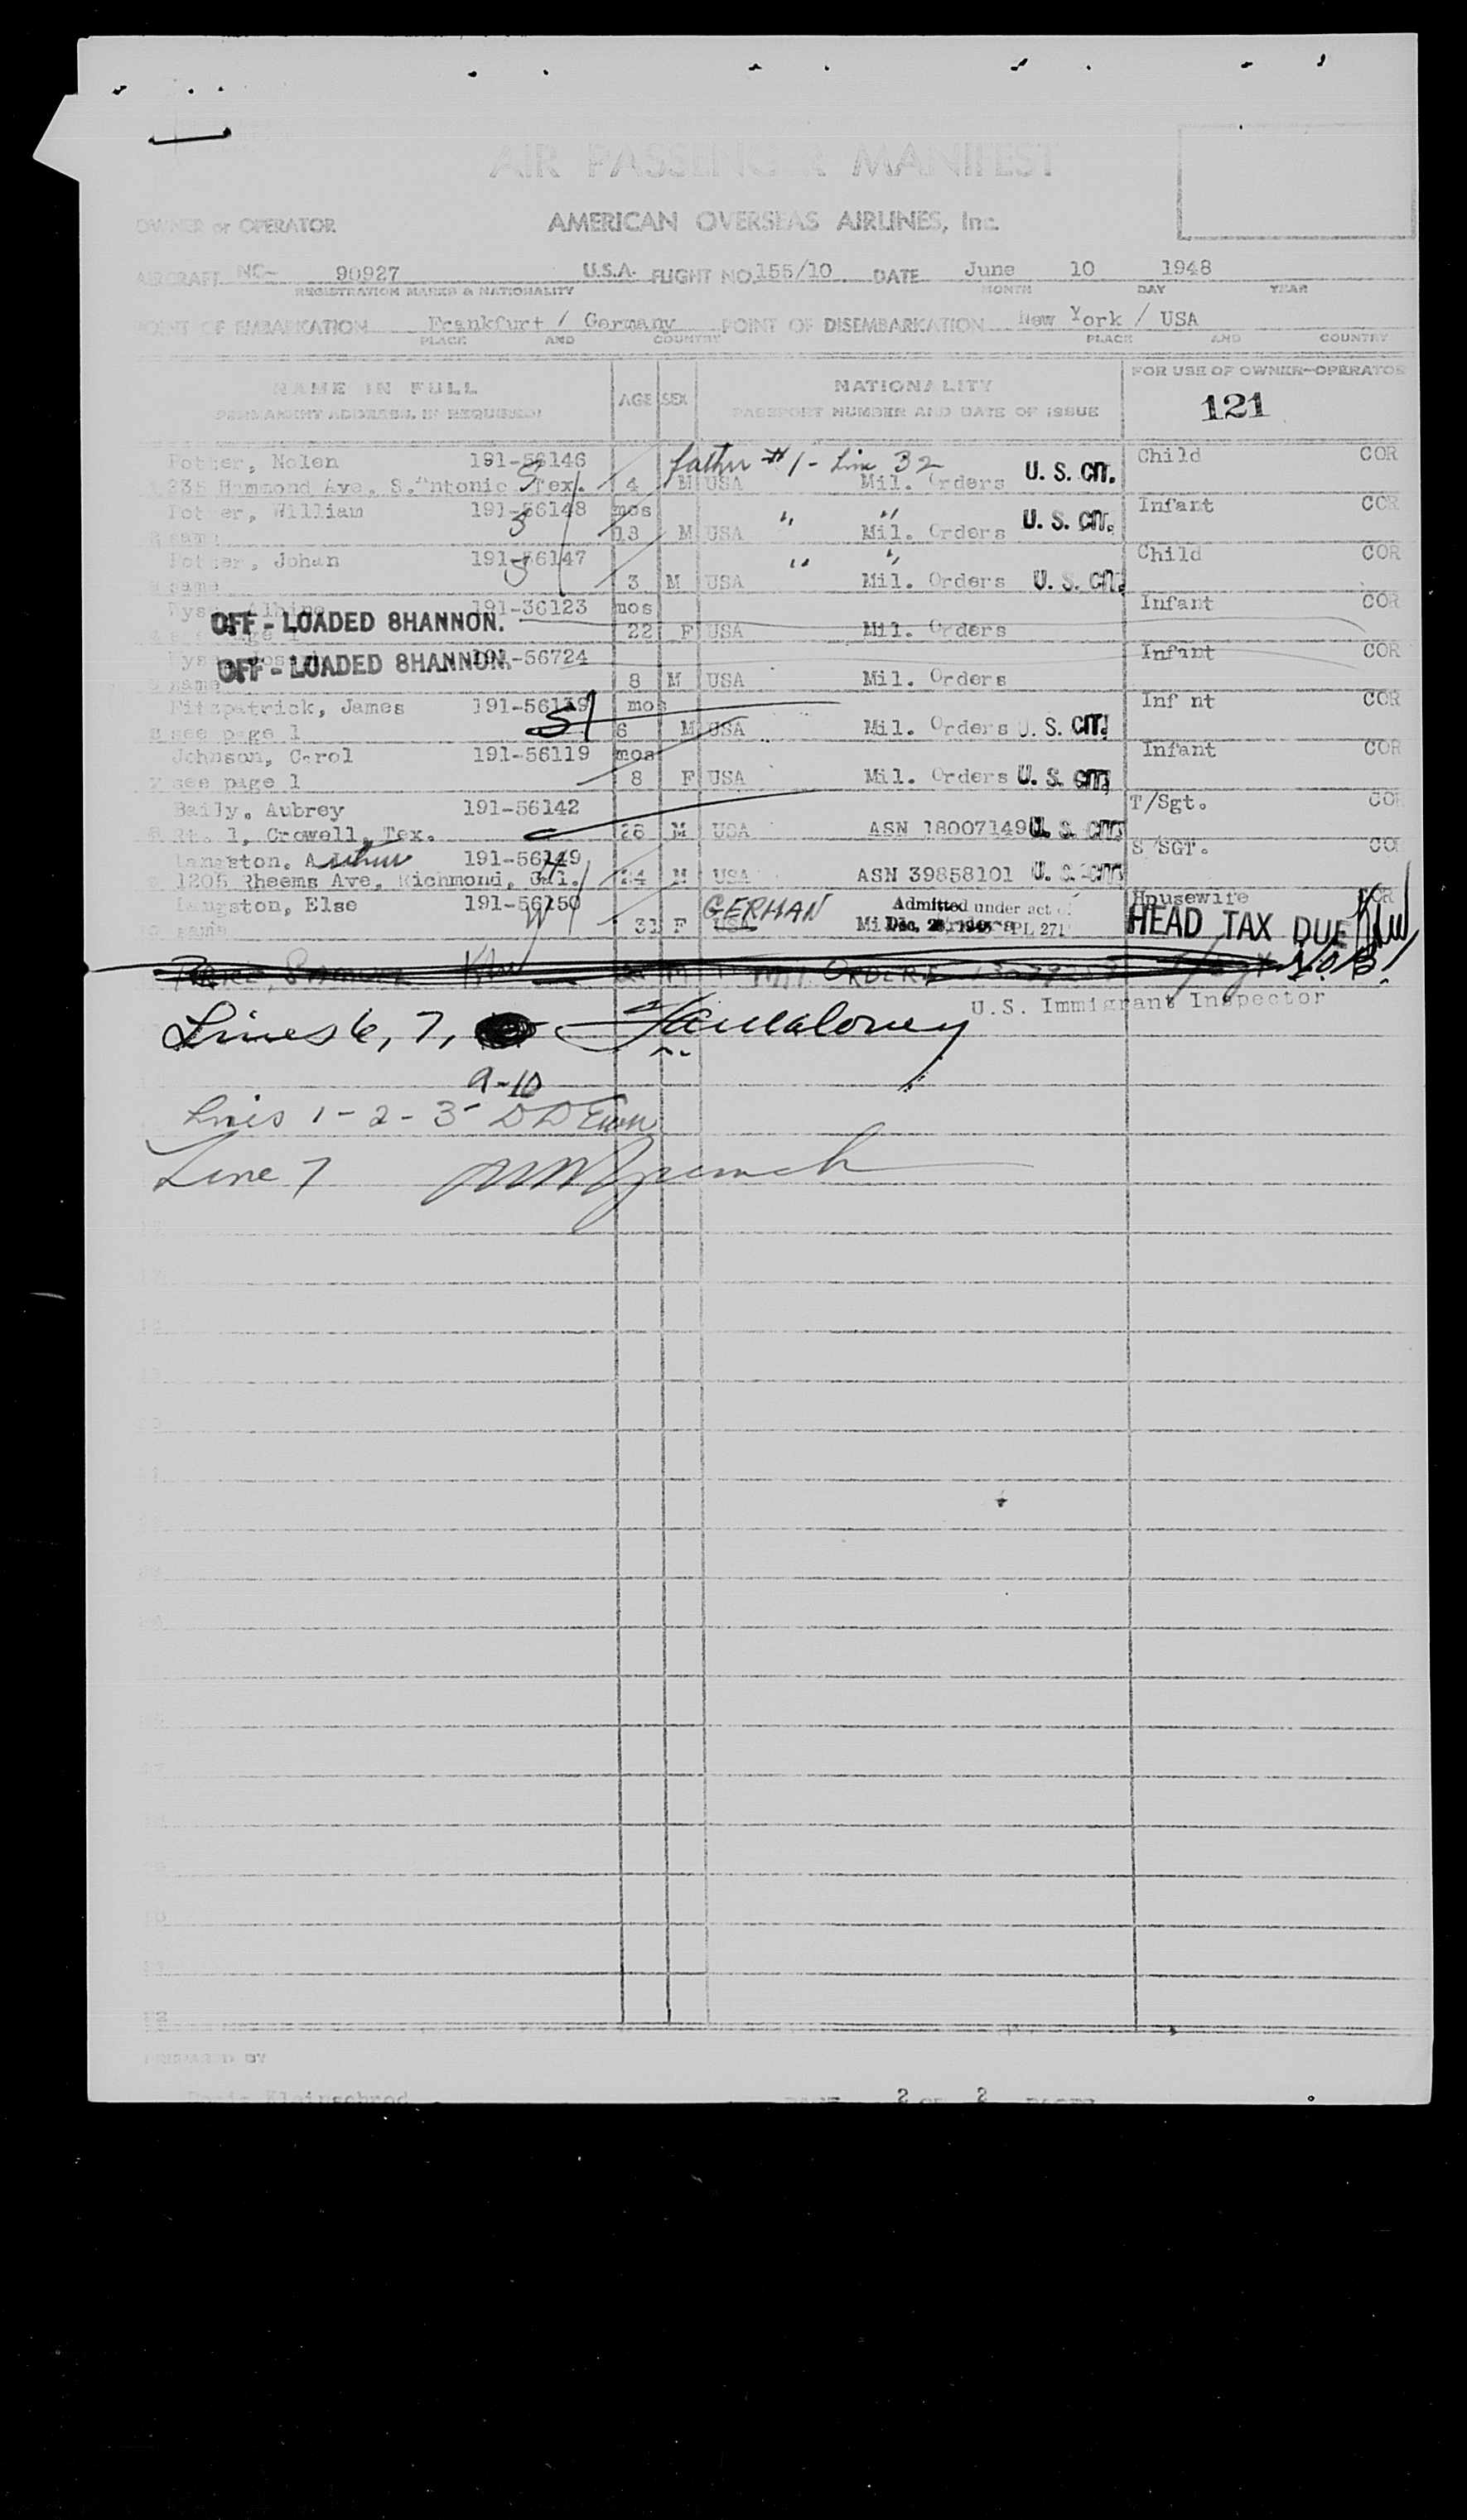 AIR PASSENGER MANIFEST
OWNER or OPERATOR AMERICAN OVERSEAS AIRLINES, Inc.
AIRCRAFT NC- 90927 U.S.A. FLIGHT NO. 155/10 DATE June 10 1948
REGISTRATION MARKS & NATIONALITY MONTH DAY YEAR
POINT OF EMBARKATION Frankfurt / Germany POINT OF DISEMBARKATION New York / USA
PLACE AND COUNTRY PLACE AND COUNTRY
NAME IN FULL AGE SEX NATIONALITY FOR USE OF OWNER-OPERATOR
PERMANENT ADDRESS, IF REQUIRED PASSPORT NUMBER AND DATE OF ISSUE 121
Nolen 191-56146 father #1 - Line 32 U. S. CIT. Child COR
Hammond Ave. S.Antonio Tex. 4 M USA Mil. Orders
William 191-56148 mos " " U. S. CIT. Infant COR
2 same M USA Mil. Orders
Johan 191-56147 " " Child COR
3 same 3 M USA Mil. Orders U. S. CIT.
191-36123 mos Infant COR
OFF-LOADED SHANNON.
22 F USA Mil. Orders
-56724 Infant COR
OFF-LOADED SHANNON.
5 same 8 M USA Mil. Orders
Fitzpatrick, James 191-56139 mos Inf nt COR
6 see page 1 6 M USA Mil. Orders U. S. CIT.
Johnson, Carol 191-56119 mos Infant COR
7 see page 1 8 F USA Mil. Orders U. S. CIT.
Baily, Aubrey 191-56142 T/Sgt. COR
8 Rt. 1, Crowell, Tex. 28 M USA ASN 18007149 U. S. CIT.
Langston, Arthur 191-56149 S/SGT. COR
9 1205 Rheems Ave, Richmond, Cal. 24 M USA ASN 39858101 U. S. CIT.
Langston, Else 191-56150 GERMAN Admitted under act of Housewife COR
10 same 31 F USA Mil. Orders Dec. 28, 1945 PL 271 HEAD TAX DUE
U.S. Immigrant Inspector
Lines 6, 7,
9-10
Lines 1-2-3
Line 7
PREPARED BY
PAGE 2 OF 2 PAGES